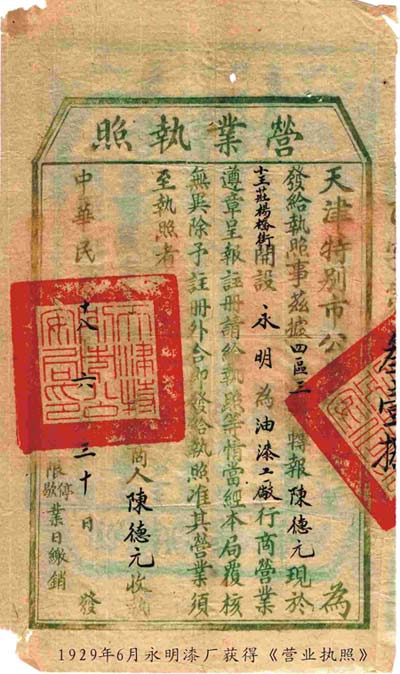 營業執照
天津特別市公 為
發給執照事茲據四區三 報陳德元現於
十王莊楊橋街開設永明為油漆工廠行商營業
遵章呈報註冊請給執照等情當經本局覆核
無異除予註冊外合即發給執照准其營業須
至執照者
商人陳德元收執
中華民 十八 六 三十日發
限停歇業日繳銷
1929年6月永明漆厂获得《营业执照》